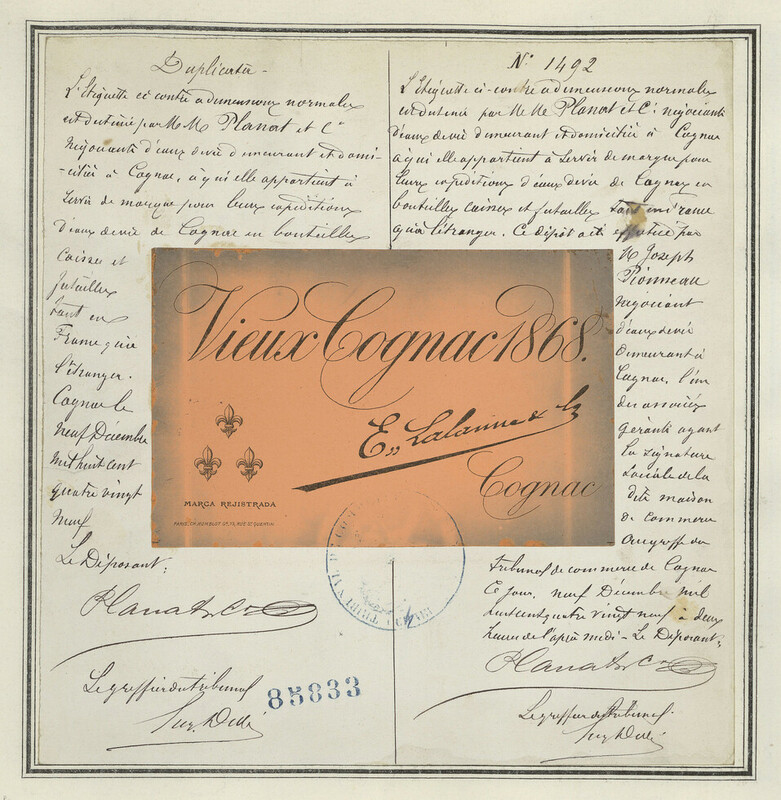 Duplicata -
L'Etiquette ci contre a dimensions normales
est destinée par M M Planat et Cie
négociants d'eaux de vie demeurant et domi-
-ciliés à Cognac, à qui elle appartient à
servir de marque pour leurs expéditions
d'eaux de vie de Cognac en bouteilles
caisses et
futailles
tant en
France qu'à
l'étranger.
Cognac le
neuf Décembre
mil huit cent
quatre vingt
neuf
Le Déposant:
Planat & Co
Le greffier du tribunal
85833
No 1492
L'Etiquette ci-contre a dimensions normales
est destinée par M M Planat et Cie négociants
d'eaux de vie demeurant et domiciliés à Cognac
à qui elle appartient à servir de marque pour
leurs expéditions d'eaux de vie de Cognac en
bouteilles caisses et futailles tant en France
qu'à l'étranger. Ce dépôt a été effectué par
M Joseph
Pionneau
négociant
d'eaux de vie
demeurant à
Cognac, l'un
des associés
gérants ayant
la signature
sociale de la
dite maison
de commerce
au greffe du
tribunal de commerce de Cognac
Ce jour, neuf Décembre mil
huit cent quatre vingt neuf à deux
heures de l'après midi - Le Déposant:
Planat & Co
Le greffier du tribunal.
Vieux Cognac 1868.
E,, Lalanne & Co
Cognac
MARCA REJISTRADA